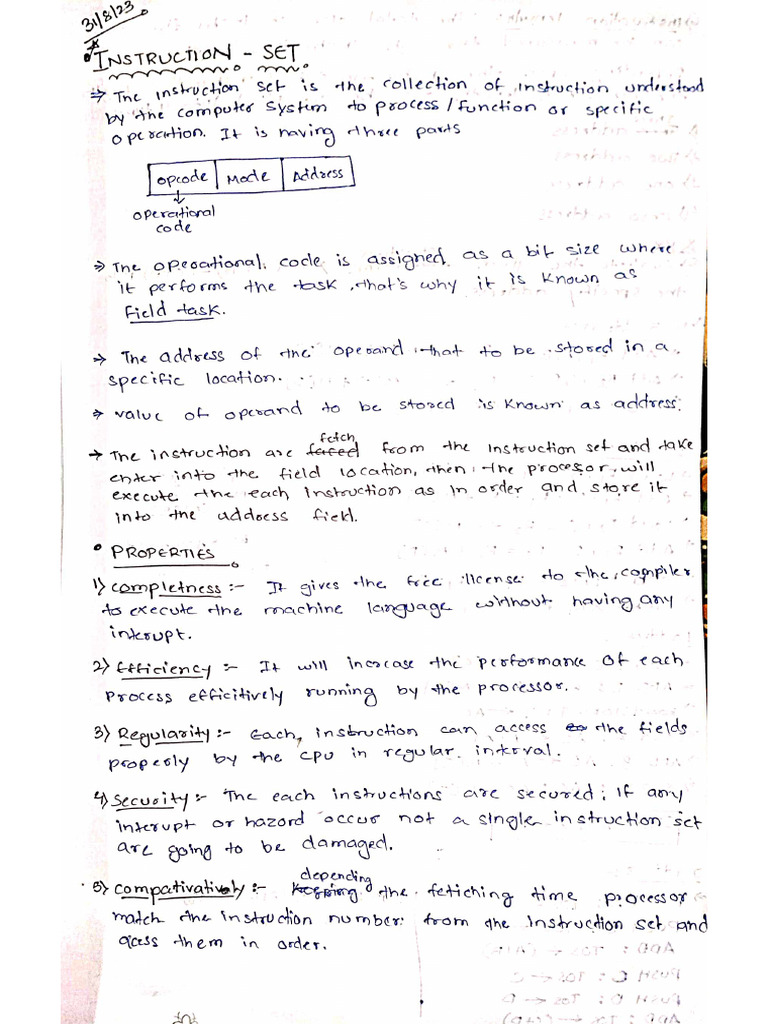 31/8/23
* INSTRUCTION - SET
⇒ The instruction set is the collection of instruction understood
by the computer system to process / function or specific
operation. It is having three parts
opcode | Mode | Address
↓
operational
code
⇒ The operational code is assigned as a bit size where
it performs the task, that's why it is known as
field task.
→ The address of the operand that to be stored in a
specific location.
⇒ value of operand to be stored is known as address.
fetch
→ The instruction are faced from the instruction set and take
enter into the field location, then the processor will
execute the each instruction as in order and store it
into the address field.
• PROPERTIES
1) completness :- It gives the free license to the compiler
to execute the machine language without having any
interupt.
2) Efficiency :- It will increase the performance of each
process efficitively running by the processor.
3) Regularity :- Each, instruction can access the fields
properly by the cpu in regular interval.
4) Security :- The each instructions are secured, if any
interupt or hazord occur not a single instruction set
are going to be damaged.
depending
5) compativatively :- the fetching time processor
match the instruction number from the instruction set and
acess them in order.
ADD : TOS ←
PUSH C : TOS ← C
PUSH D : TOS ← D
ADD : TOS ← (C+D)